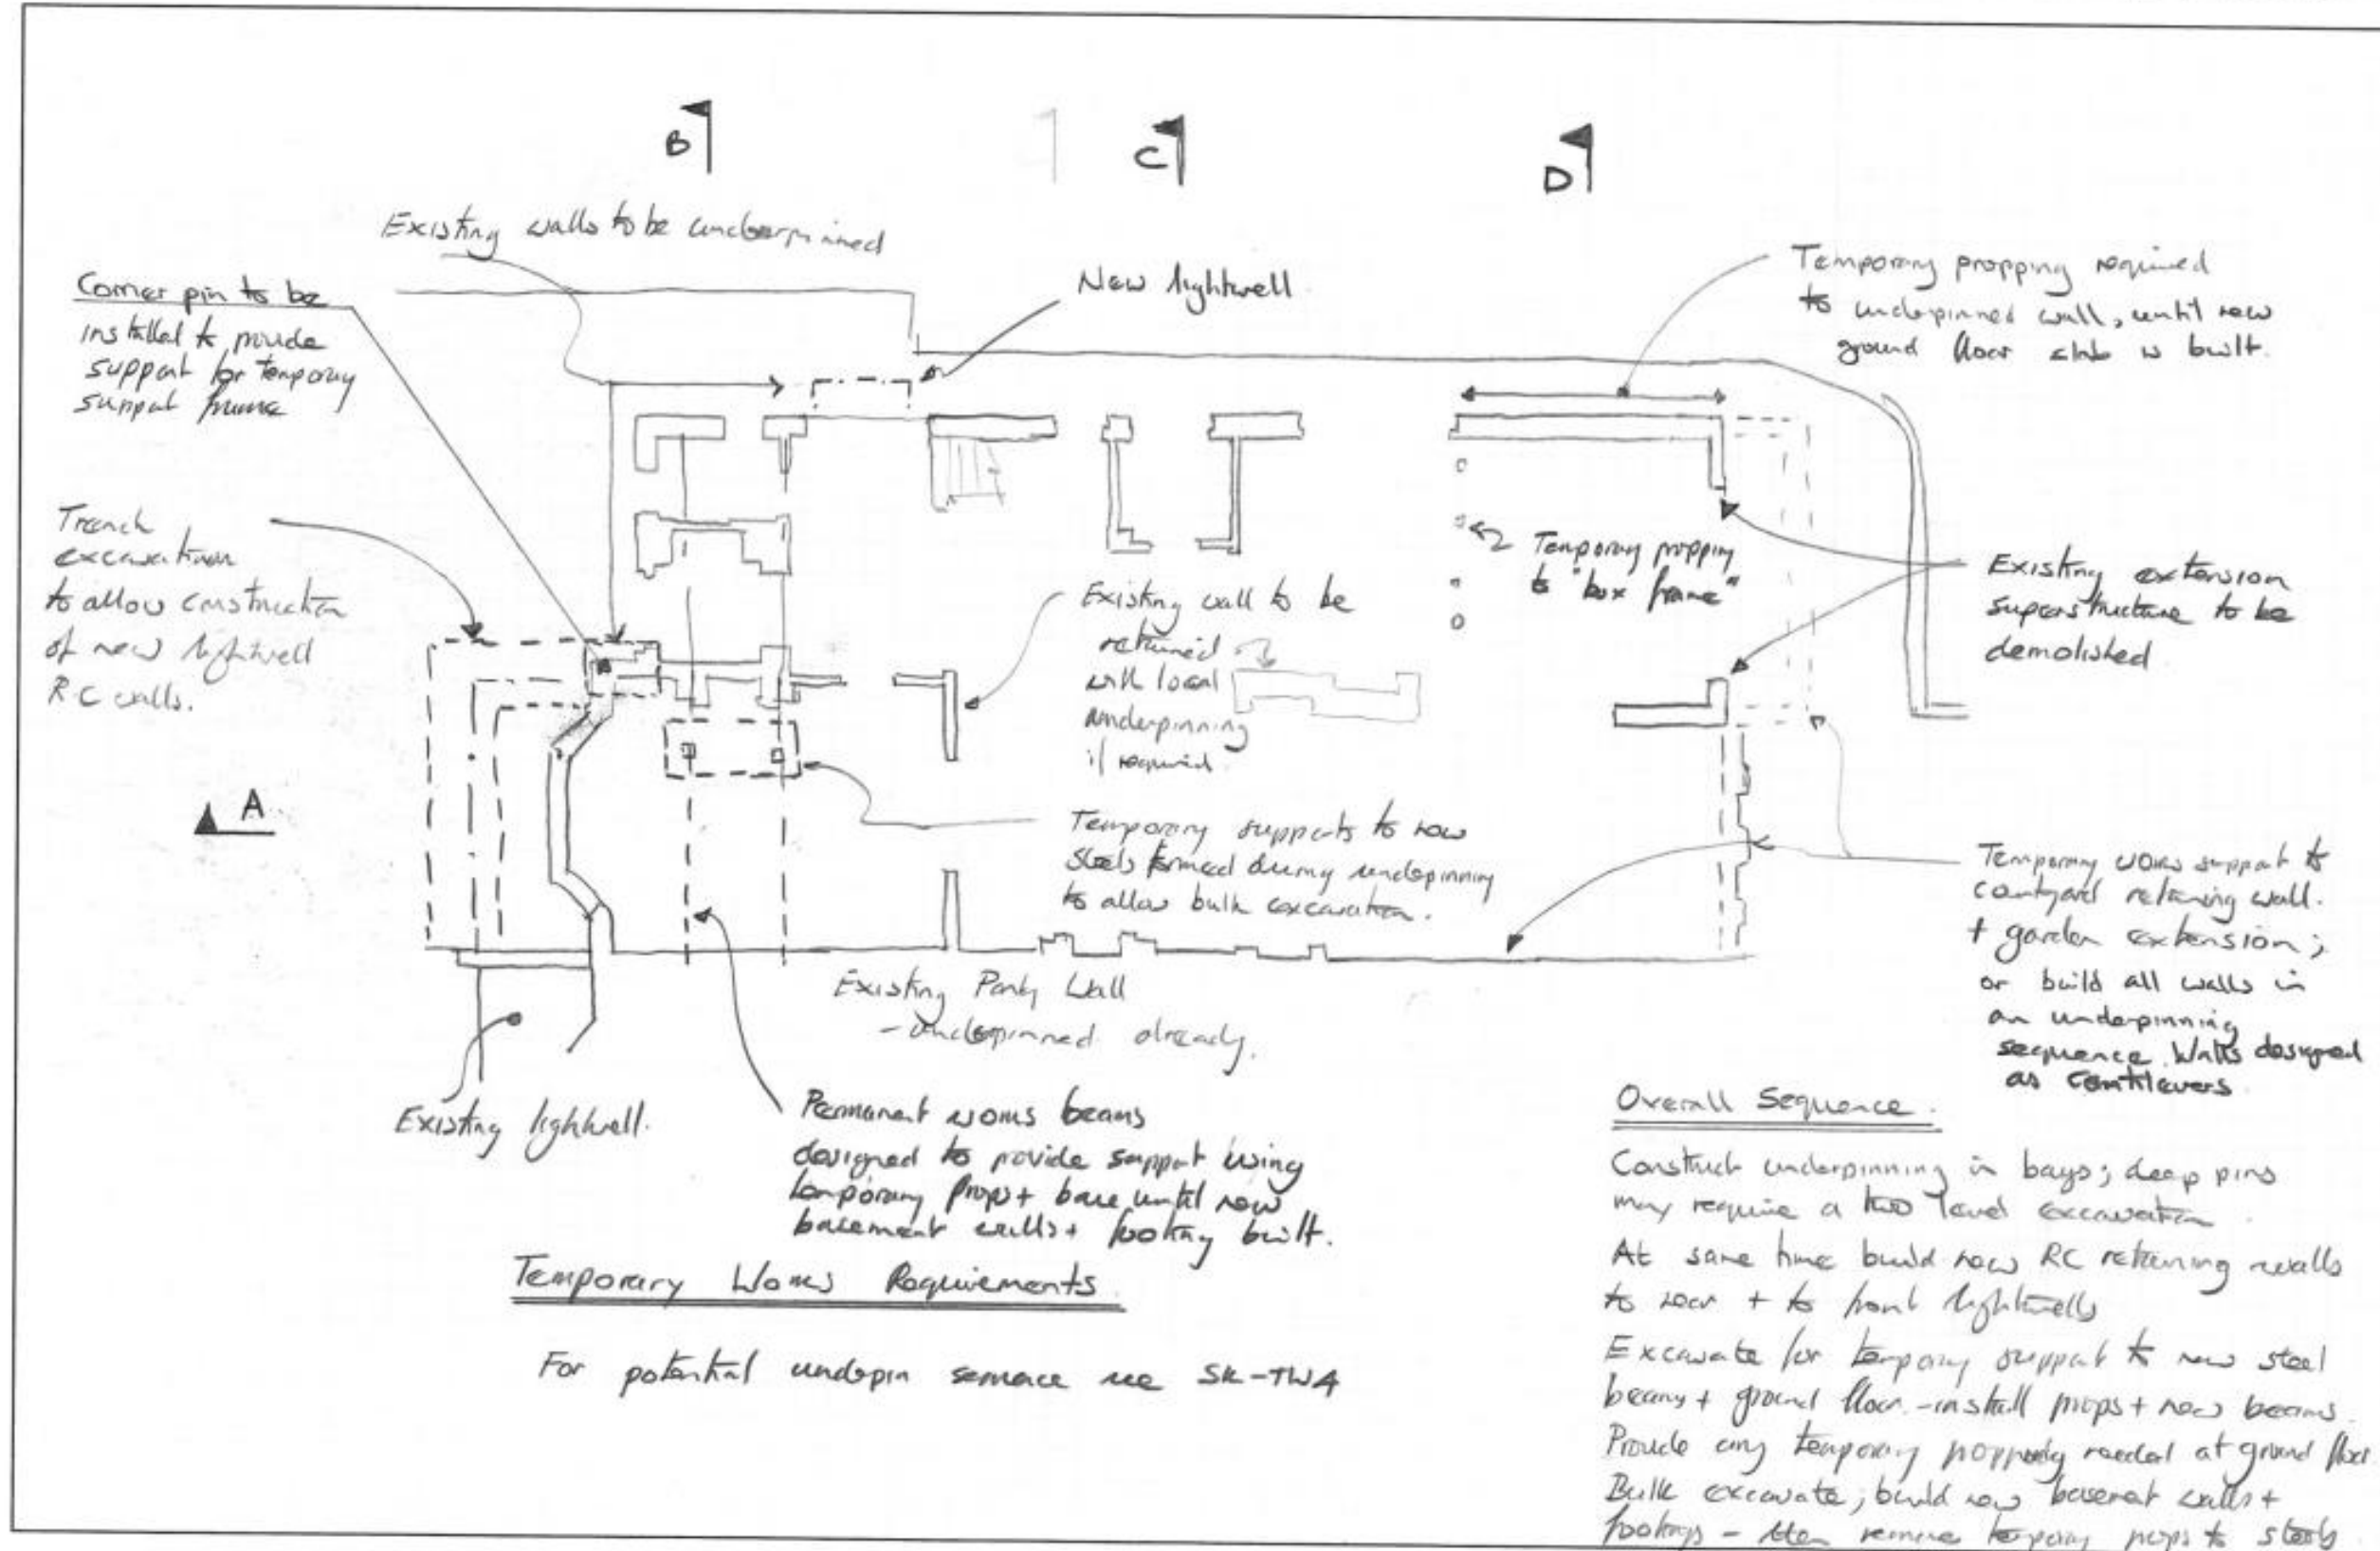 B
C
D
Existing walls to be underpinned
Corner pin to be
installed to provide
support for temporary
support frame
New lightwell
Temporary propping required
to underpinned wall, until new
ground floor slab is built.
Trench
excavation
to allow construction
of new lightwell
RC walls.
Temporary propping
to "box frame"
Existing extension
superstructure to be
demolished
Existing wall to be
retained
with local
underpinning
if required.
A
Temporary supports to new
steels formed during underpinning
to allow bulk excavation.
Temporary works support to
courtyard retaining wall.
+ garden extension;
or build all walls in
an underpinning
sequence. Walls designed
as cantilevers.
Existing Party Wall
- underpinned already.
Existing lightwell.
Permanent works beams
designed to provide support using
temporary props + base until new
basement walls + footing built.
Temporary Works Requirements.
For potential underpin see SK-TW4
Overall Sequence.
Construct underpinning in bays; deep pins
may require a two level excavation.
At same time build new RC retaining walls
to rear + to front lightwells
Excavate for temporary support to new steel
beams + ground floor. - install props + new beams.
Provide any temporary propping needed at ground floor.
Bulk excavate; build new basement walls +
footings - then remove temporary props to steels